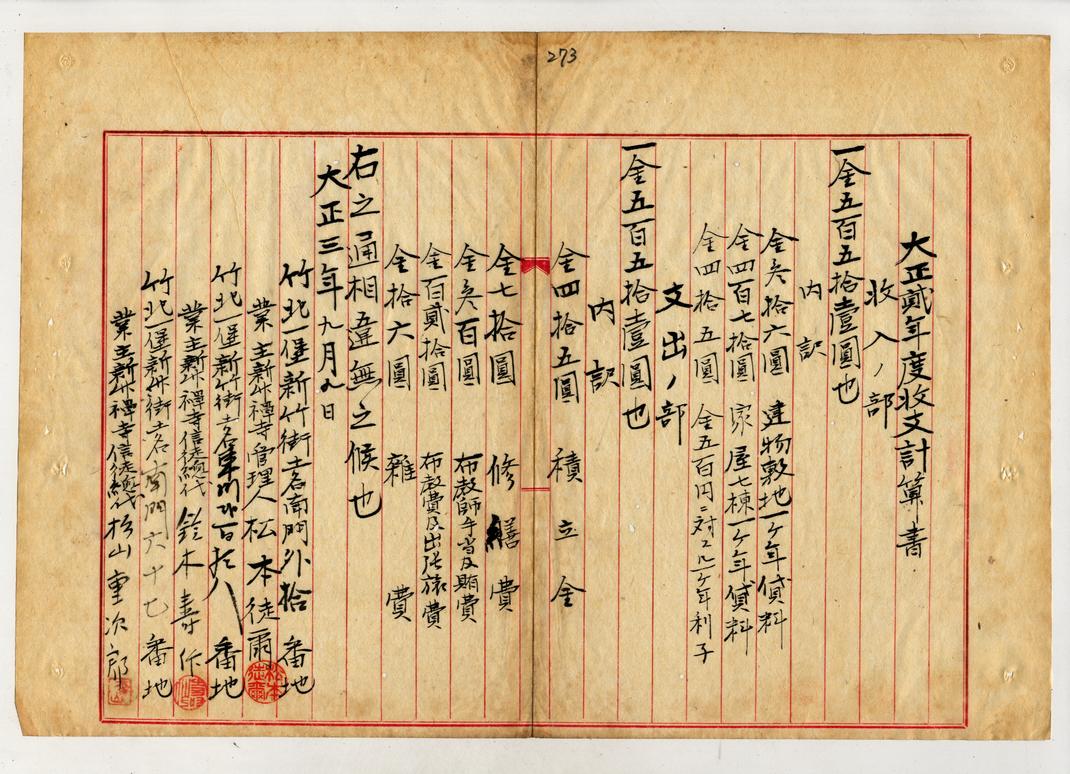 273
大正貳年度收支計算書
收入ノ部
一金五百五拾壹圓也
内訳
金參拾六圓 建物敷地一ケ年貸料
金四百七拾圓 家屋七棟一ケ年貸料
金四拾五圓 金五百円ニ対スル一ケ年利子
支出ノ部
一金五百五拾壹圓也
内訳
金四拾五圓 積立金
金七拾圓 修繕費
金參百圓 布教師手当及賄費
金百貳拾圓 布教費及出張旅費
金拾六圓 雜費
右之通相違無之候也
大正三年九月 日
竹北一堡新竹街土名南門外拾番地
業主新竹禅寺管理人松本徒爾
竹北一堡新竹街土名東門外百拾八番地
業主新竹禅寺信徒總代 鈴木壽作
竹北一堡新竹街土名南門六十七番地
業主新竹禅寺信徒總代 杉山重次郎
松本徒爾